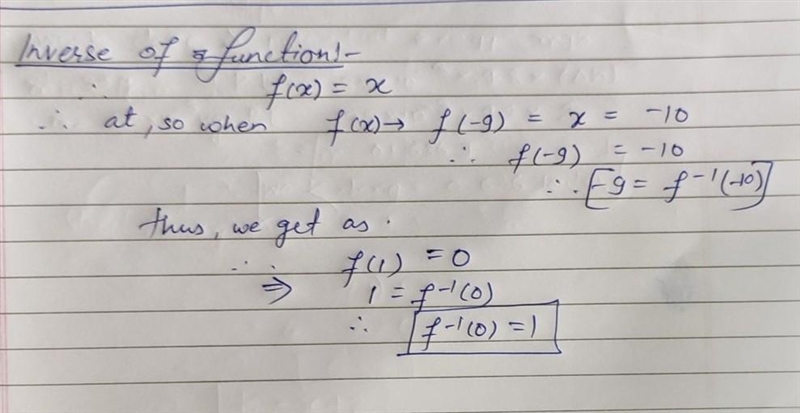 Inverse of function:-
∴ f(x) = x
∴ at, so when f(x) → f(-9) = x = -10
∴ f(-9) = -10
∴ [-9 = f⁻¹(-10)]
thus, we get as.
∴ f(1) = 0
⇒ 1 = f⁻¹(0)
∴ f⁻¹(0) = 1